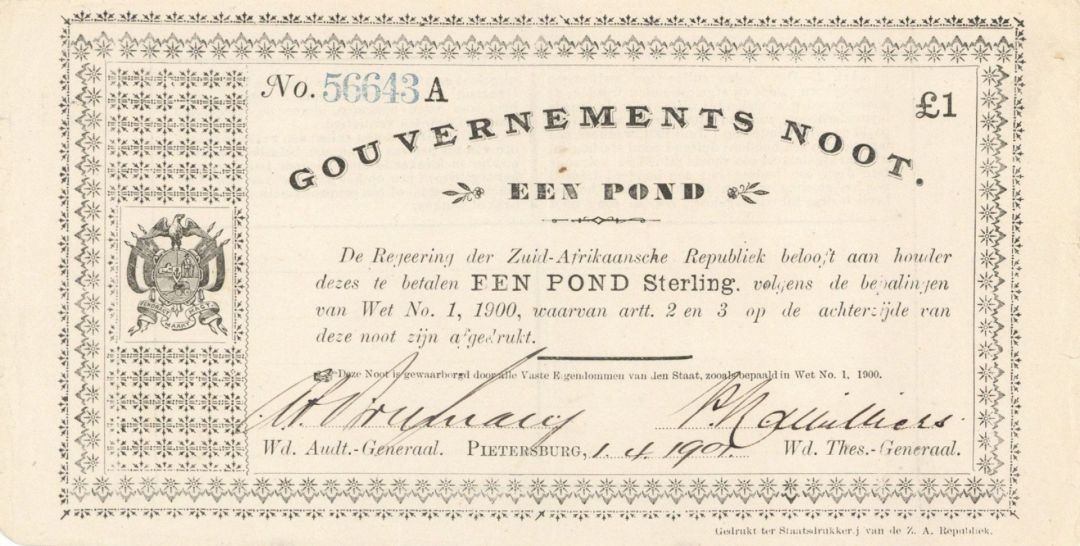 No. 56643 A
£1
GOUVERNEMENTS NOOT.
EEN POND
De Regeering der Zuid-Afrikaansche Republiek belooft aan houder
dezes te betalen EEN POND Sterling, volgens de bepalingen
van Wet No. 1, 1900, waarvan artt. 2 en 3 op de achterzijde van
deze noot zijn afgedrukt.
Deze Noot is gewaarborgd door alle Vaste Eigendommen van den Staat, zooals bepaald in Wet No. 1, 1900.
Wd. Audt.-Generaal. PIETERSBURG, 1. 4. 1901. Wd. Thes.-Generaal.
Gedrukt ter Staatsdrukkerij van de Z. A. Republiek.